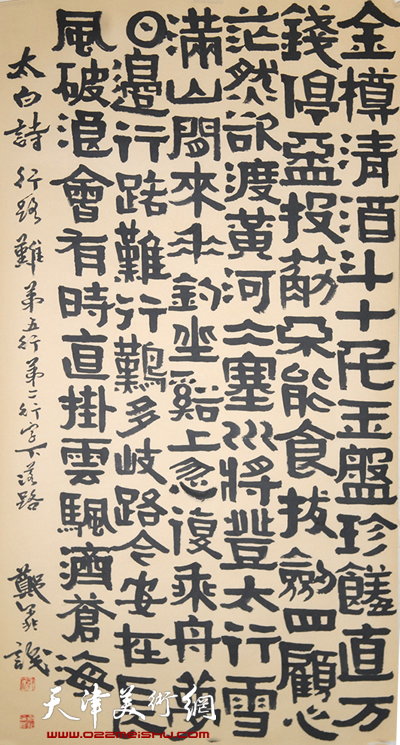 金樽清酒斗十千玉盤珍饈直万
錢停盃投筯不能食拔劍四顧心
茫然欲渡黃河冰塞川將登太行雪
滿山閒來垂釣坐谿上忽復乘舟夢
日邊行路難行難多岐路今安在長
風破浪會有時直掛雲颿濟蒼海
太白詩 行路難 第五行第二行字下落路 鄭 識
天津美術網
www.022meishu.com